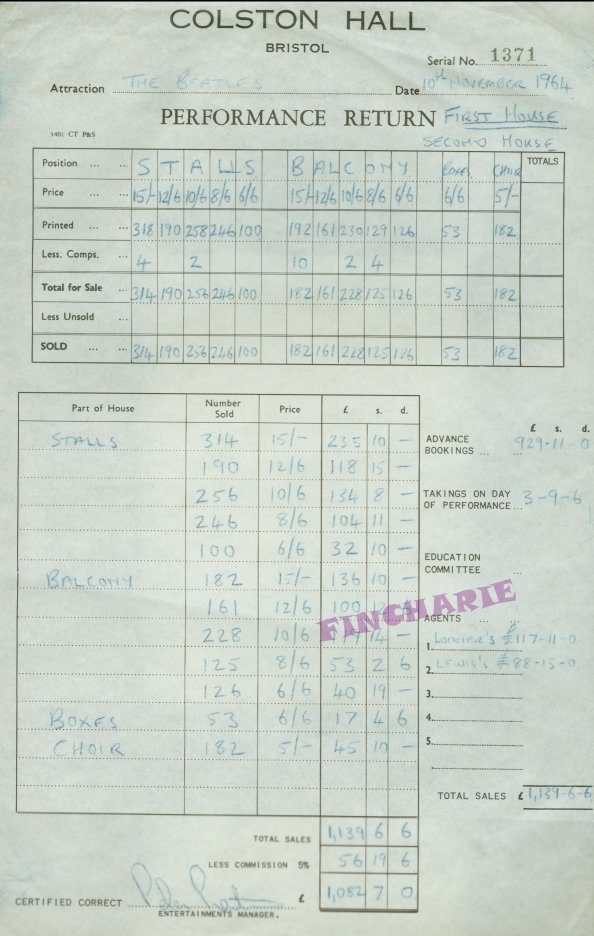 COLSTON HALL
BRISTOL
Serial No. 1371
Attraction THE BEATLES Date 10th NOVEMBER 1964
PERFORMANCE RETURN FIRST HOUSE
1401 CT P&S SECOND HOUSE
Position ... ... STALLS BALCONY BOXES CHOIR TOTALS
Price ... ... 15/- 12/6 10/6 8/6 6/6 15/- 12/6 10/6 8/6 6/6 6/6 5/-
Printed ... ... 318 190 258 246 100 192 161 230 129 126 53 182
Less. Comps. ... 4 2 10 2 4
Total for Sale ... 314 190 256 246 100 182 161 228 125 126 53 182
Less Unsold ...
SOLD ... ... 314 190 256 246 100 182 161 228 125 126 53 182
Part of House Number Sold Price £ s. d.
STALLS 314 15/- 235 10 -
190 12/6 118 15 -
256 10/6 134 8 -
246 8/6 104 11 -
100 6/6 32 10 -
BALCONY 182 15/- 136 10 -
161 12/6 100
228 10/6 14 -
125 8/6 53 2 6
126 6/6 40 19 -
BOXES 53 6/6 17 4 6
CHOIR 182 5/- 45 10 -
TOTAL SALES 1,139 6 6
LESS COMMISSION 5% 56 19 6
£ 1,082 7 0
CERTIFIED CORRECT
ENTERTAINMENTS MANAGER.
£ s. d.
ADVANCE
BOOKINGS ... 929-11-0
TAKINGS ON DAY
OF PERFORMANCE... 3-9-6
EDUCATION
COMMITTEE ...
FINCHARIE
AGENTS ...
1. LOCKIER'S £117-11-0
2. LEWIS'S £88-15-0
3.
4.
5.
TOTAL SALES £ 1,139-6-6